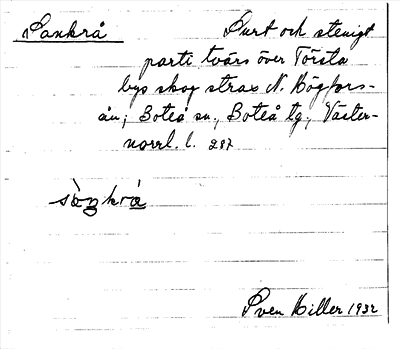 Sankrå Surt och stenigt
parti tvärs över Törsta
bys skog strax N. Högfors-
ån; Boteå sn., Boteå tg, Väster-
norrl. l. 287
sànkrå
Sven Hiller 1932